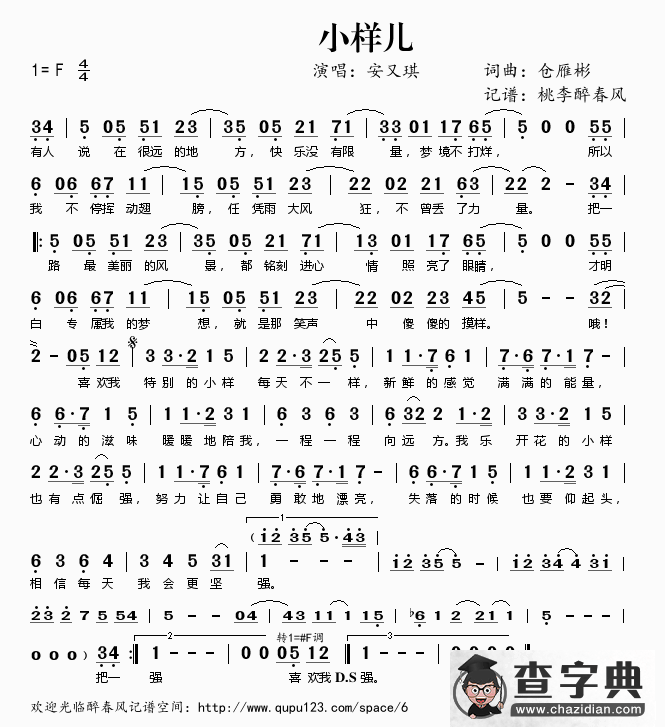 小样儿
1=F 4/4 演唱：安又琪 词曲：仓雁彬
记谱：桃李醉春风
34 | 5 05 51 23 | 35 05 21 71 | 33 01 17 65 | 5 0 0 55 |
有人 说 在 很远 的地 方，快 乐没 有限 量，梦 境不 打烊， 所以
6 06 67 11 | 15 05 57 23 | 22 02 21 63 | 22 2 - 34 |
我 不 停挥 动翅 膀，任 凭雨 大风 狂，不 曾丢 了力 量。 把一
‖: 5 05 51 23 | 35 05 21 71 | 13 01 17 65 | 5 0 0 55 |
路 最 美丽 的风 景，都 铭刻 进心 情 照 亮了 眼睛， 才明
6 06 67 11 | 15 05 57 23 | 22 02 23 45 | 5 - - 32 |
白 专 属我 的梦 想，就 是那 笑声 中 傻 傻的 摸样。 哦！
2 - 05 12 | 3 3·2 1 5 | 2 2·3 25 5 | 1 1·7 6 1 | 7·6 7·1 5 |
喜 欢我 特 别 的 小 样 每 天 不 一 样，新 鲜 的 感 觉 满 满 的 能 量，
6 6·7 1 5 | 1 1·2 3 1 | 6 3 6 3 | 6 32 2 1·2 | 3 3·2 1 5 |
心 动 的 滋 味 暖 暖 地 陪 我，一 程 一 程 向 远 方。我 乐 开 花 的 小 样
2 2·3 25 5 | 1 1·7 6 1 | 7·6 7·1 5 - | 6 6·7 1 5 | 1 1·2 3 1 |
也 有 点 倔 强，努 力 让 自 己 勇 敢 地 漂 亮， 失 落 的 时 候 也 要 仰 起 头，
1
（12 35 5·43
6 3 6 4 | 3 4 5 31 | 1 - - - | 12 35 5 - | 12 34 4 31 |
相 信 每 天 我 会 更 坚 强。
23 2 7 5 54 | 5 - - 04 | 43 11 1 15 | b6 12 21 1 | 5 - - - |
2 转1=#F调 3
0 0 0）34 :‖ 1 - - - | 0 0 05 12 ‖ 1 - - - ‖
把一 强 喜 欢我 D.S 强。
欢迎光临醉春风记谱空间：http://www.qupu123.com/space/6
查字典
www.chazidian.com